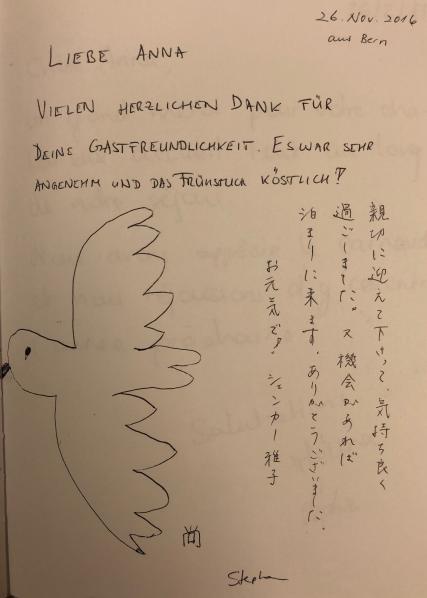 26. Nov. 2016
aus Bern
LIEBE ANNA
VIELEN HERZLICHEN DANK FÜR
DEINE GASTFREUNDLICHKEIT. ES WAR SEHR
ANGENEHM UND DAS FRÜHSTÜCK KÖSTLICH!
親切に迎えて下さって、気持ち良く
過ごしました。又機会があれば
泊まりに来ます。ありがとうございました。
お元気で! シェンカー雅子
Stephan